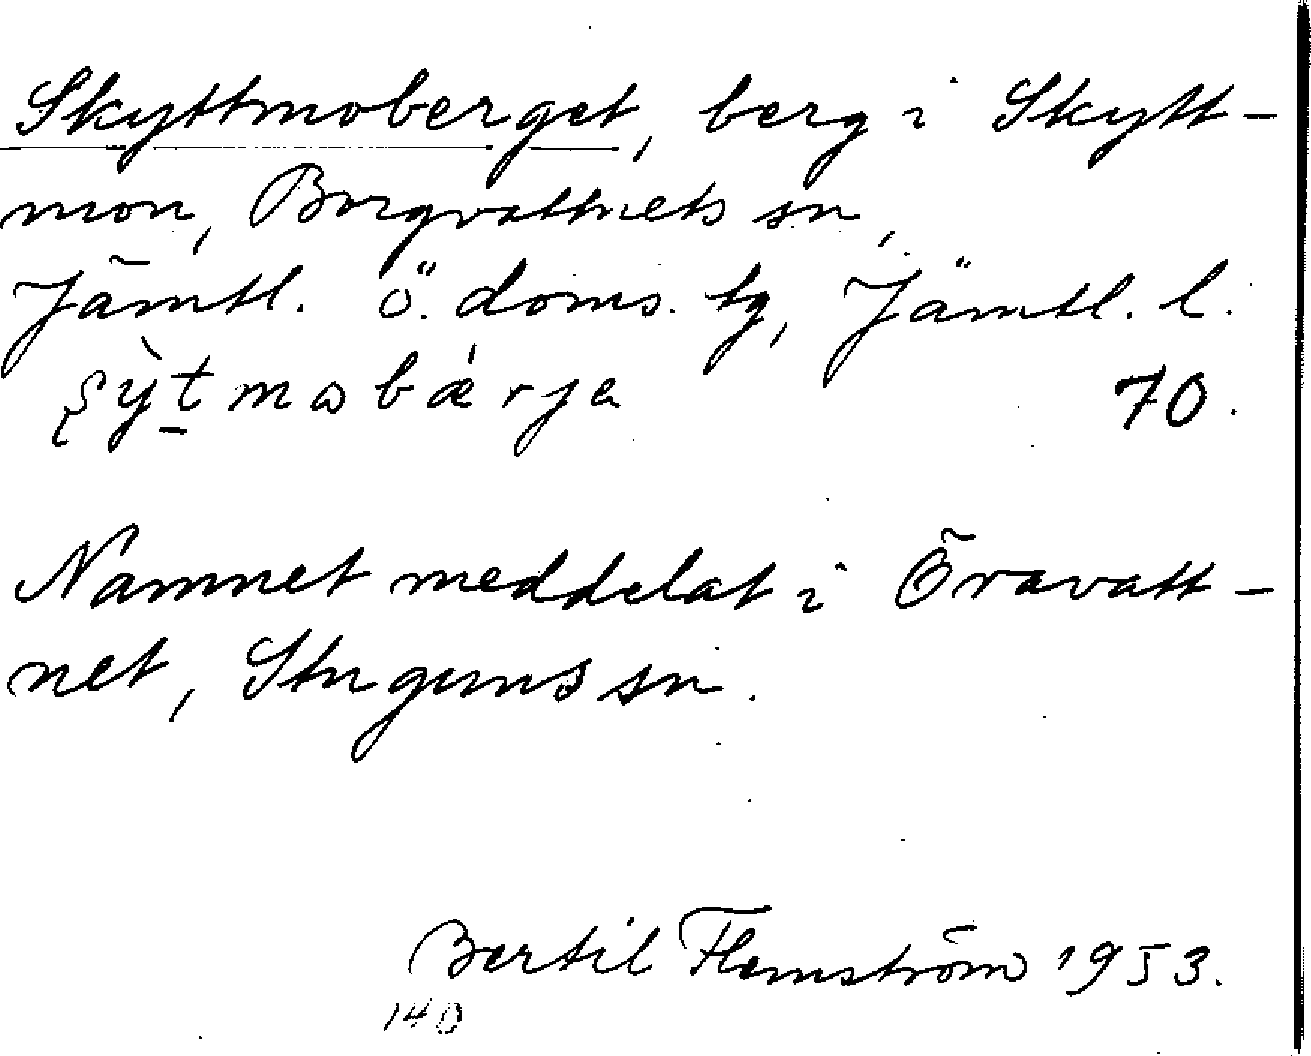 Skyttmoberget, berg i Skytt-
mon, Borgvattnets sn,
Jämtl. ö. doms. tg, Jämtl. l.
70.
Namnet meddelat i Öravatt-
net, Stuguns sn.
Bertil Flemström 1953.
140